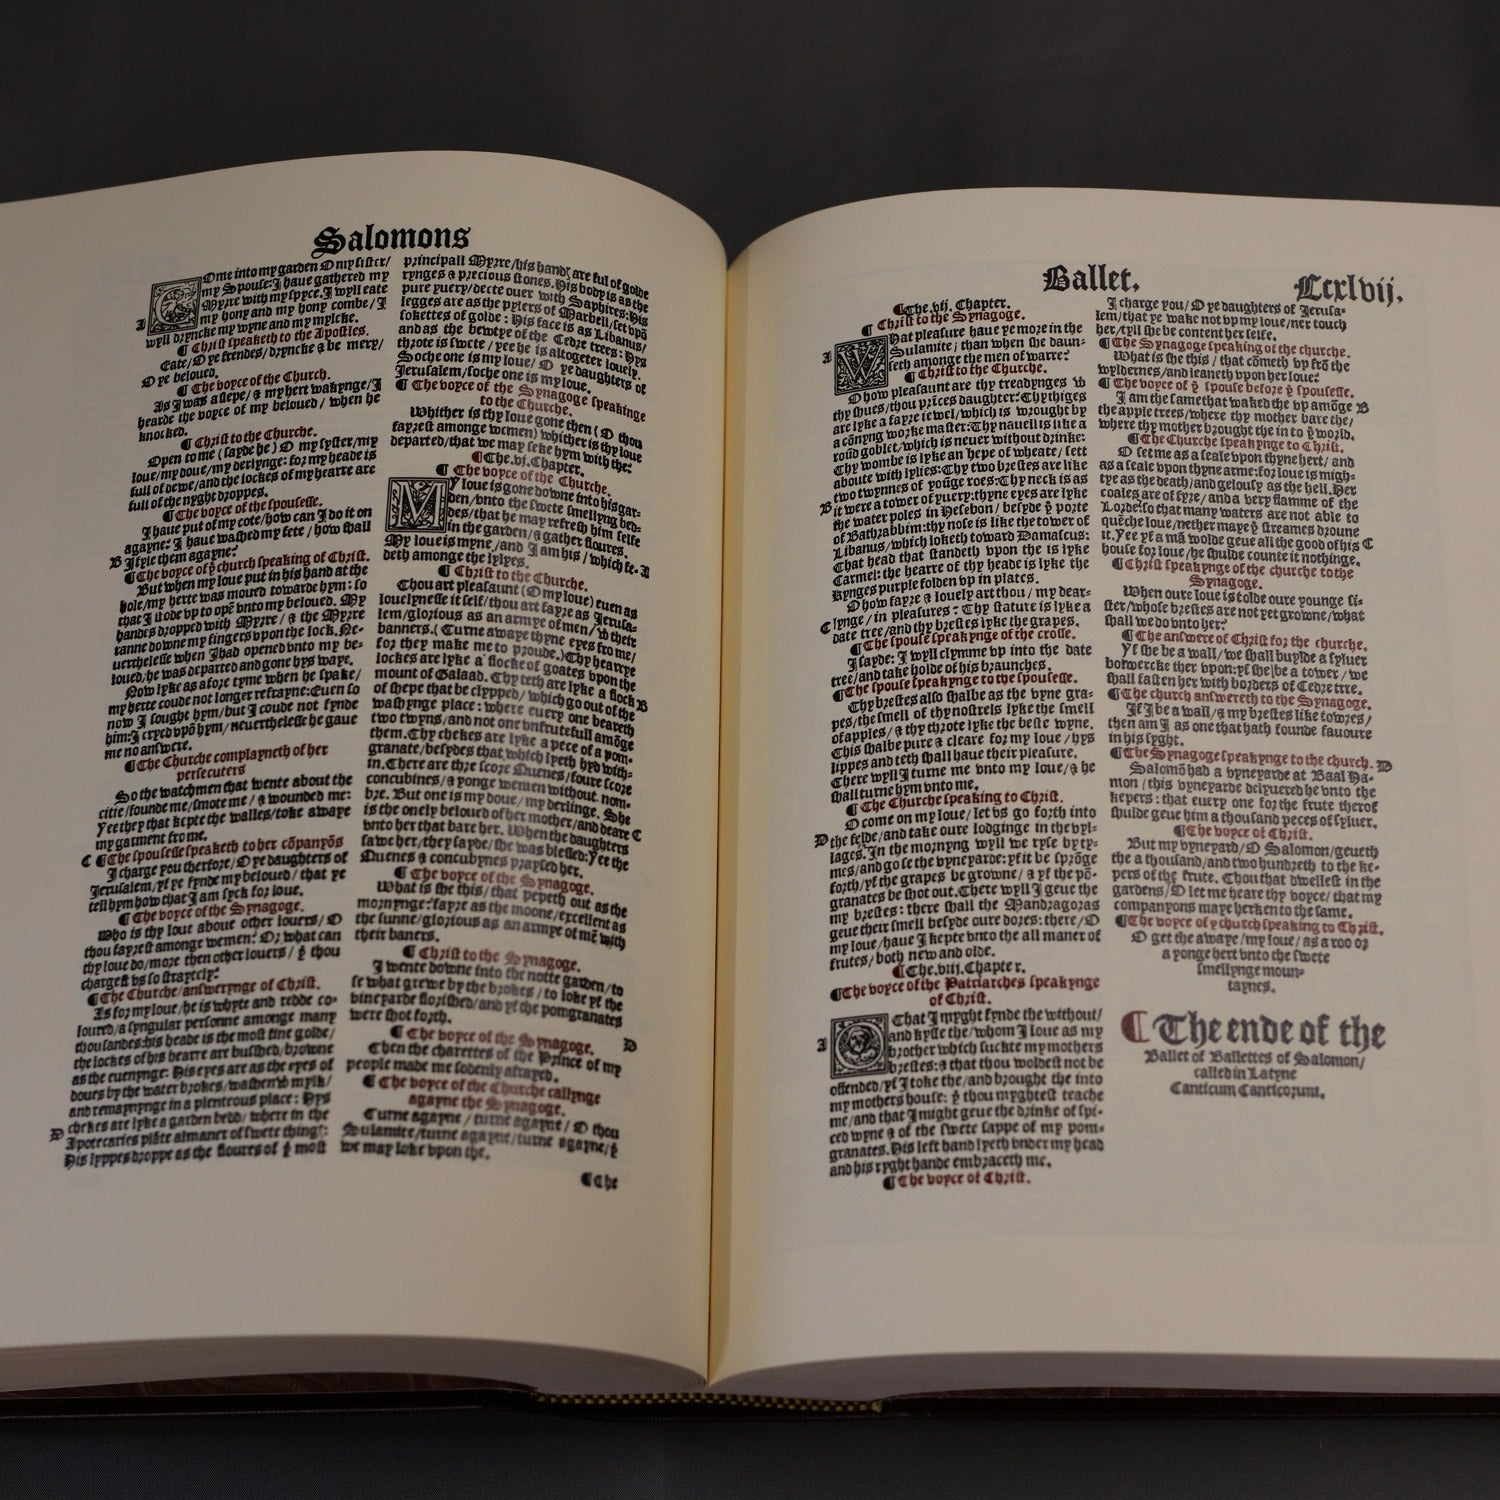 Salomons
Come into my garden O my sister/
my Spouse: I haue gathered my
Myrre with my spyce. I wyll eate
my hony and my hony combe/ I
A
wyll dryncke my wyne and my mylcke.
¶ Christ speaketh to the Apostles.
Eate/ O ye frendes/ dryncke & be mery/
O ye beloued.
¶ The voyce of the Church.
As I was aslepe/ & my hert wakynge/ I
hearde the voyce of my beloued/ when he
knocked.
¶ Christ to the Churche.
Open to me (sayde he) O my syster/my
loue/my doue/my derlynge: for my heade is
full of dewe/and the lockes of my hearre are
full of the nyght droppes.
¶ The voyce of the spousesse.
I haue put of my cote/how can I do it on
agayne? I haue washed my fete / how shall
B I fyle them agayne?
¶ The voyce of ye church speaking of Christ.
But when my loue put in his hand at the
hole/my herte was moued towarde hym: so
that I stode vp to opē vnto my beloued. My
handes dropped with Myrre/ & the Myrre
ranne downe my fingers vpon the lock. Ne-
uerthelesse when I had opened vnto my be-
loued/he was departed and gone hys waye.
Now lyke as afore tyme when he spake/
my herte coude not longer refrayne: Euen so
now I sought hym/but I coude not fynde
him: I cryed vpō hym/neuerthelesse he gaue
me no answere.
¶ The Churche complayneth of her
persecuters
So the watchmen that wente about the
citie/founde me/smote me / & wounded me:
Yee they that kepte the walles/toke awaye
my garment fro me.
C ¶ The spousesse speaketh to her cōpanyōs
I charge you therfore/ O ye daughters of
Jerusalem/yf ye fynde my beloued/ that ye
tell hym how that I am syck for loue.
¶ The voyce of the Synagoge.
Who is thy loue about other louers/ O
thou fayrest amonge wemen? Or what can
thy loue do/more then other louers/ yt thou
chargest vs so straytely?
¶ The Churche/answerynge of Christ.
As for my loue/he is whyte and redde co-
loured/a syngular personne amonge many
thousandes: his heade is the most fine golde/
the lockes of his hearre are busshed/browne
as the euenynge: His eyes are as the eyes of
doues by the water brokes/washen w mylk/
and remaynynge in a plenteous place: Hys
chekes are lyke a garden bedd/ where in the
D Apotecaries plāte almaner of swete thingꝭ:
His lyppes droppe as the floures of ye most
principall Myrre/his handꝭ are ful of golde
rynges & precious stones. His body is as the
pure yuery/decte ouer with Saphires: His
legges are as the pylers of Marbell/set vpō
sokettes of golde: His face is as Libanus/
and as the bewtye of the Cedre trees: Hys
throte is swete / yee he is altogeter louely.
Soche one is my loue/ O ye daughters of
Jerusalem/soche one is my loue.
¶ The voyce of the Synagoge speakinge
to the Churche.
Whither is thy loue gone then (O thou
fayrest amonge wemen) whither is thy loue
departed/that we may seke hym with the?
¶ The.vi.Chapter.
¶ The voyce of the Churche.
My loue is gone downe into his gar-
den/vnto the swete smellyng bed-
des/that he may refresh him selfe
in the garden/& gather floures.
My loue is myne /and I am his / which fe- A
deth amonge the lylyes.
¶ Christ to the Churche.
Thou art pleasaunt (O my loue) euen as
louelynesse it self/thou art fayre as Jerusa-
lem/glorious as an armye of men/ w their
banners. (Turne awaye thyne eyes fro me/
for they make me to proude.) Thy hearrye
lockes are lyke a flocke of goates vpon the
mount of Galaad. Thy teth are lyke a flock B
of shepe that be clypped/ which go out of the
washynge place: where euery one beareth
two twyns/and not one vnfrutefull amōge
them. Thy chekes are lyke a pece of a pom-
granate/besydes that which lyeth hyd with-
in. There are thre score Quenes/foure score
concubines/& yonge wemen without nom-
bre. But one is my doue/my derlinge. She
is the onely beloued of her mother/and deare C
vnto her that bare her. When the daughters
sawe her/they sayde/she was blessed: Yee the
Quenes & concubynes praysed her.
¶ The voyce of the Synagoge.
What is she this/ that pepeth out as the
mornynge? fayre as the moone/excellent as
the sunne/glorious as an armye of mē with
their baners.
¶ Christ to the Synagoge.
I wente downe into the notte garden/to
se what grewe by the brokes / to loke yf the
vineyarde florished/and yf the pomgranates
were shot forth.
¶ The voyce of the Synagoge. D
Then the charettes of the Prince of my
people made me sodenly afrayed.
¶ The voyce of the Churche callynge
agayne the Synagoge.
Turne agayne / turne agayne/ O thou
Sulamite/turne agayne/turne agayne/yt
we may loke vpon the.
¶ The
Ballet. Ccxlvij.
¶ The.vii. Chapter.
¶ Christ to the Synagoge.
A What pleasure haue ye more in the
Sulamite; than when she daun-
seth amonge the men of warre?
¶ Christ to the Churche.
O how pleasaunt are thy treadynges w
thy shues/thou prīces daughter: Thy thiges
are lyke a fayre iewel/which is wrought by
a cōnyng worke master: Thy nauell is like a
roūd goblet/which is neuer without drinke:
Thy wombe is lyke an hepe of wheate/ sett
aboute with lylies: Thy two brestes are like
two twynnes of yoūge roes: Thy neck is as
B it were a tower of yuery: thyne eyes are lyke
the water poles in Hesebon/ besyde ye porte
of Bathrabbim: thy nose is like the tower of
Libanus/which loketh toward Damascus:
That head that standeth vpon the is lyke
Carmel: the hearre of thy heade is lyke the
kynges purple folden vp in plates.
O how fayre & louely art thou / my dear-
C lynge / in pleasures? Thy stature is lyke a
date tree/and thy brestes lyke the grapes.
¶ The spouse speakynge of the crosse.
I sayde: I wyll clymme vp into the date
tree/and take holde of his braunches.
¶ The spouse speakynge to the spousesse.
Thy brestes also shalbe as the vyne gra-
pes/the smell of thy nostrels lyke the smell
of apples/ & thy throte lyke the beste wyne.
This shalbe pure & cleare for my loue / hys
lippes and teth shall haue their pleasure.
There wyll I turne me vnto my loue/& he
shall turne hym vnto me.
¶ The Churche speaking to Christ.
O come on my loue/ let vs go forth into
D the felde/and take oure lodginge in the vyl-
lages. In the mornyng wyll we ryse by ty-
mes/and go se the vyneyarde: yf it be sprōge
forth/yf the grapes be growne/ & yf the pō-
granates be shot out. There wyll I geue the
my brestes: there shall the Mandragoras
geue their smell besyde oure dores: there/ O
my loue/haue I kepte vnto the all maner of
frutes/ both new and olde.
¶ The.viii.Chapter.
¶ The voyce of the Patriarches speakynge
of Christ.
O That I myght fynde the without/
and kysse the/whom I loue as my
A brother which suckte my mothers
brestes: & that thou woldest not be
offended/yf I toke the/and brought the into
my mothers house: yt thou myghtest teache
me/and that I might geue the drinke of spi-
ced wyne & of the swete sappe of my pom-
granates. His left hand lyeth vnder my head
and his ryght hande embraceth me.
¶ The voyce of Christ.
I charge you/ O ye daughters of Jerusa-
lem/that ye wake not vp my loue/ner touch
her/tyll she be content her selfe.
¶ The Synagoge speaking of the churche.
What is she this / that cōmeth vp frō the
wyldernes/and leaneth vpon her loue?
¶ The voyce of ye spouse before ye spousesse.
I am the same that waked the vp amōge B
the apple trees/where thy mother bare the/
where thy mother brought the in to ye world.
¶ The Churche speakynge to Christ.
O set me as a seale vpon thyne hert/ and
as a seale vpon thyne arme: for loue is migh-
tye as the death/and gelousy as the hell. Her
coales are of fyre/and a very flamme of the
Lorde: so that many waters are not able to
quēche loue/nether maye ye streames droune
it. Yee yf a mā wolde geue all the good of his C
house for loue/he shulde counte it nothinge.
¶ Christ speakynge of the churche to the
Synagoge.
When oure loue is tolde oure younge si-
ster/whose brestes are not yet growne/what
shall we do vnto her?
¶ The answere of Christ for the churche.
Yf she be a wall/we shall buylde a syluer
bolwercke ther vpon: yf she be a tower / we
shall fasten her with borders of Cedre tree.
¶ The church answereth to the Synagoge.
If I be a wall/& my brestes like towres/
then am I as one that hath founde fauoure
in his syght.
¶ The Synagoge speakynge to the churche. D
Salomō had a vyneyarde at Baal Ha-
mon / this vyneyarde delyuered he vnto the
kepers: that euery one for the frute therof
shulde geue him a thousand peces of syluer.
¶ The voyce of Christ.
But my vyneyard/ O Salomon/geueth
the a thousand/and two hundreth to the ke-
pers of the frute. Thou that dwellest in the
gardens/ O let me heare thy voyce/ that my
companyons maye herken to the same.
¶ The voyce of ye church speaking to Christ.
O get the awaye /my loue/ as a roo or
a yonge hert vnto the swete
smellynge moun-
taynes.
¶ The ende of the
Ballet of Ballettes of Salomon/
called in Latyne
Canticum Canticorum.